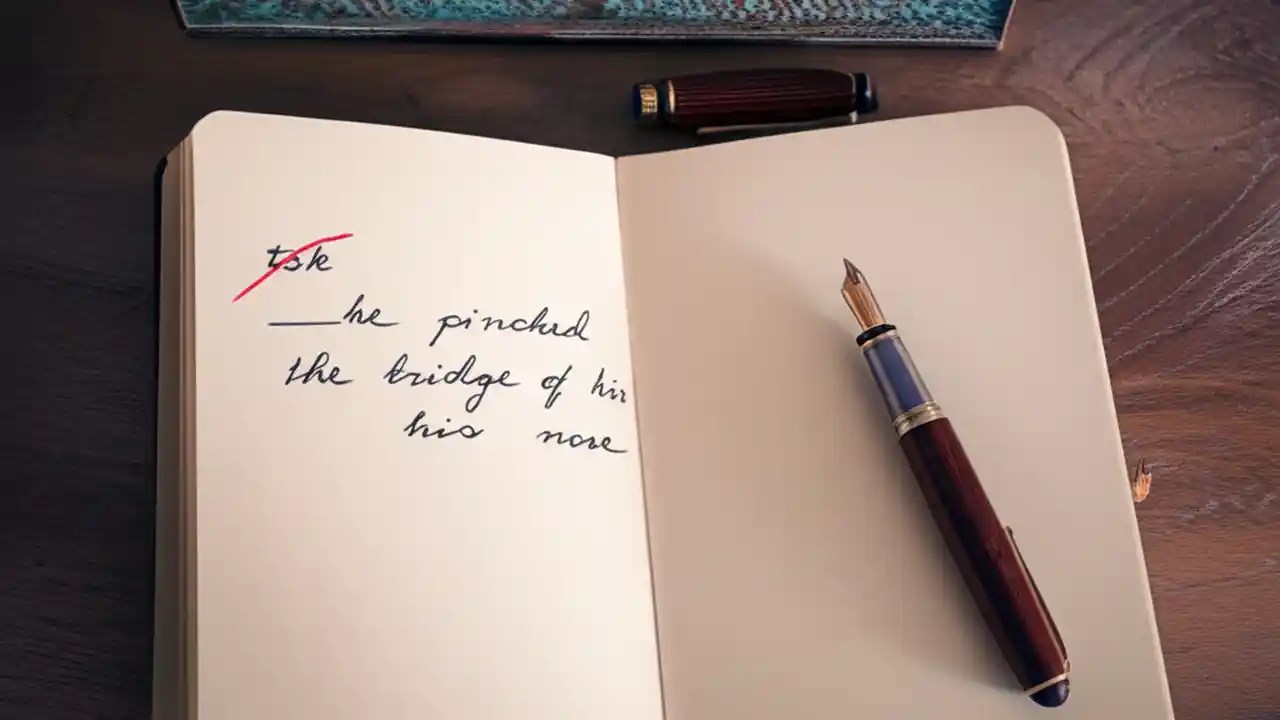 tsk
___he pinched
the bridge of his
his nose